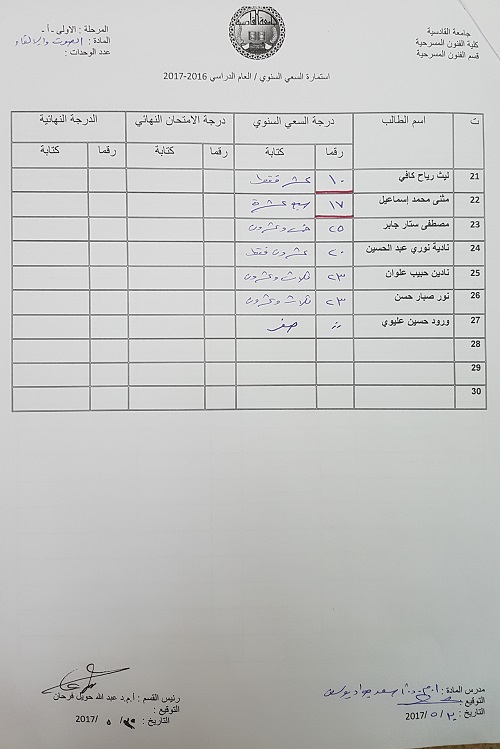 جامعة القادسية
كلية الفنون المسرحية
قسم الفنون المسرحية
المرحلة : الاولى - أ -
المادة : الصوت والالقاء
عدد الوحدات :
استمارة السعي السنوي / العام الدراسي 2016-2017
ت اسم الطالب درجة السعي السنوي درجة الامتحان النهائي الدرجة النهائية
رقما كتابة رقما كتابة رقما كتابة
21 ليث رياح كافي ١٠ عشر فقط
22 مثنى محمد إسماعيل ١٧ سبع عشرة
23 مصطفى ستار جابر ٢٥ خمس وعشرون
24 نادية نوري عبد الحسين ٢٠ عشرون فقط
25 نادين حبيب علوان ٢٣ ثلاث وعشرون
26 نور صبار حسن ٢٣ ثلاث وعشرون
27 ورود حسين عليوي صفر
28
29
30
مدرس المادة :
التوقيع :
التاريخ : ٥ /2017
رئيس القسم : أ.م.د عبد الله حويل فرحان
التوقيع :
التاريخ : ٥ /2017